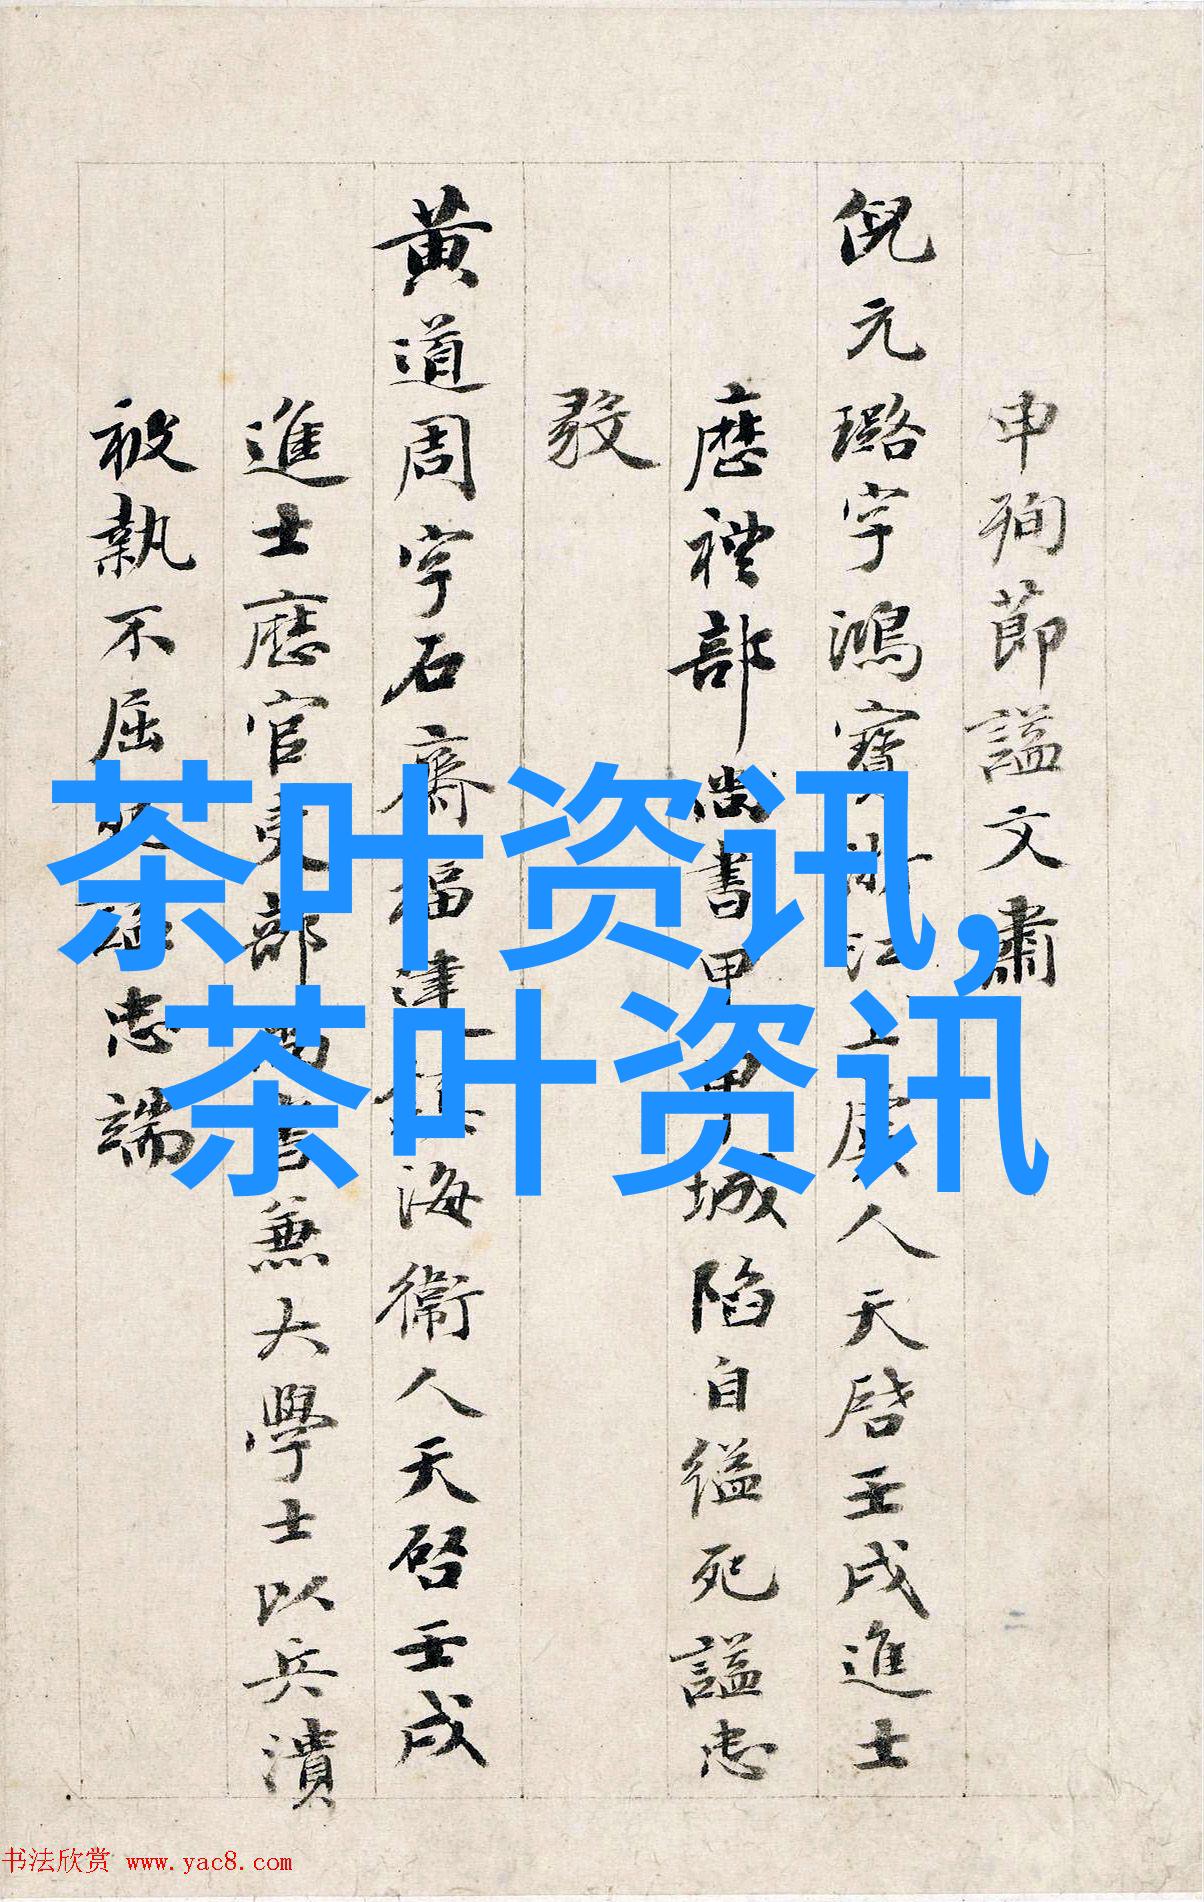 申殉節謚文肅
倪元璐字鴻寳浙江上虞人天啓壬戌進士
歷禮部尚書甲申城陷自縊死謚忠
毅
黄道周字石齋福建鎮海衞人天啓壬戌
進士歷官吏部尚書兼大學士以兵潰
被執不屈忠端
茶叶资讯,
茶叶资讯
书法欣赏 www.yac8.com